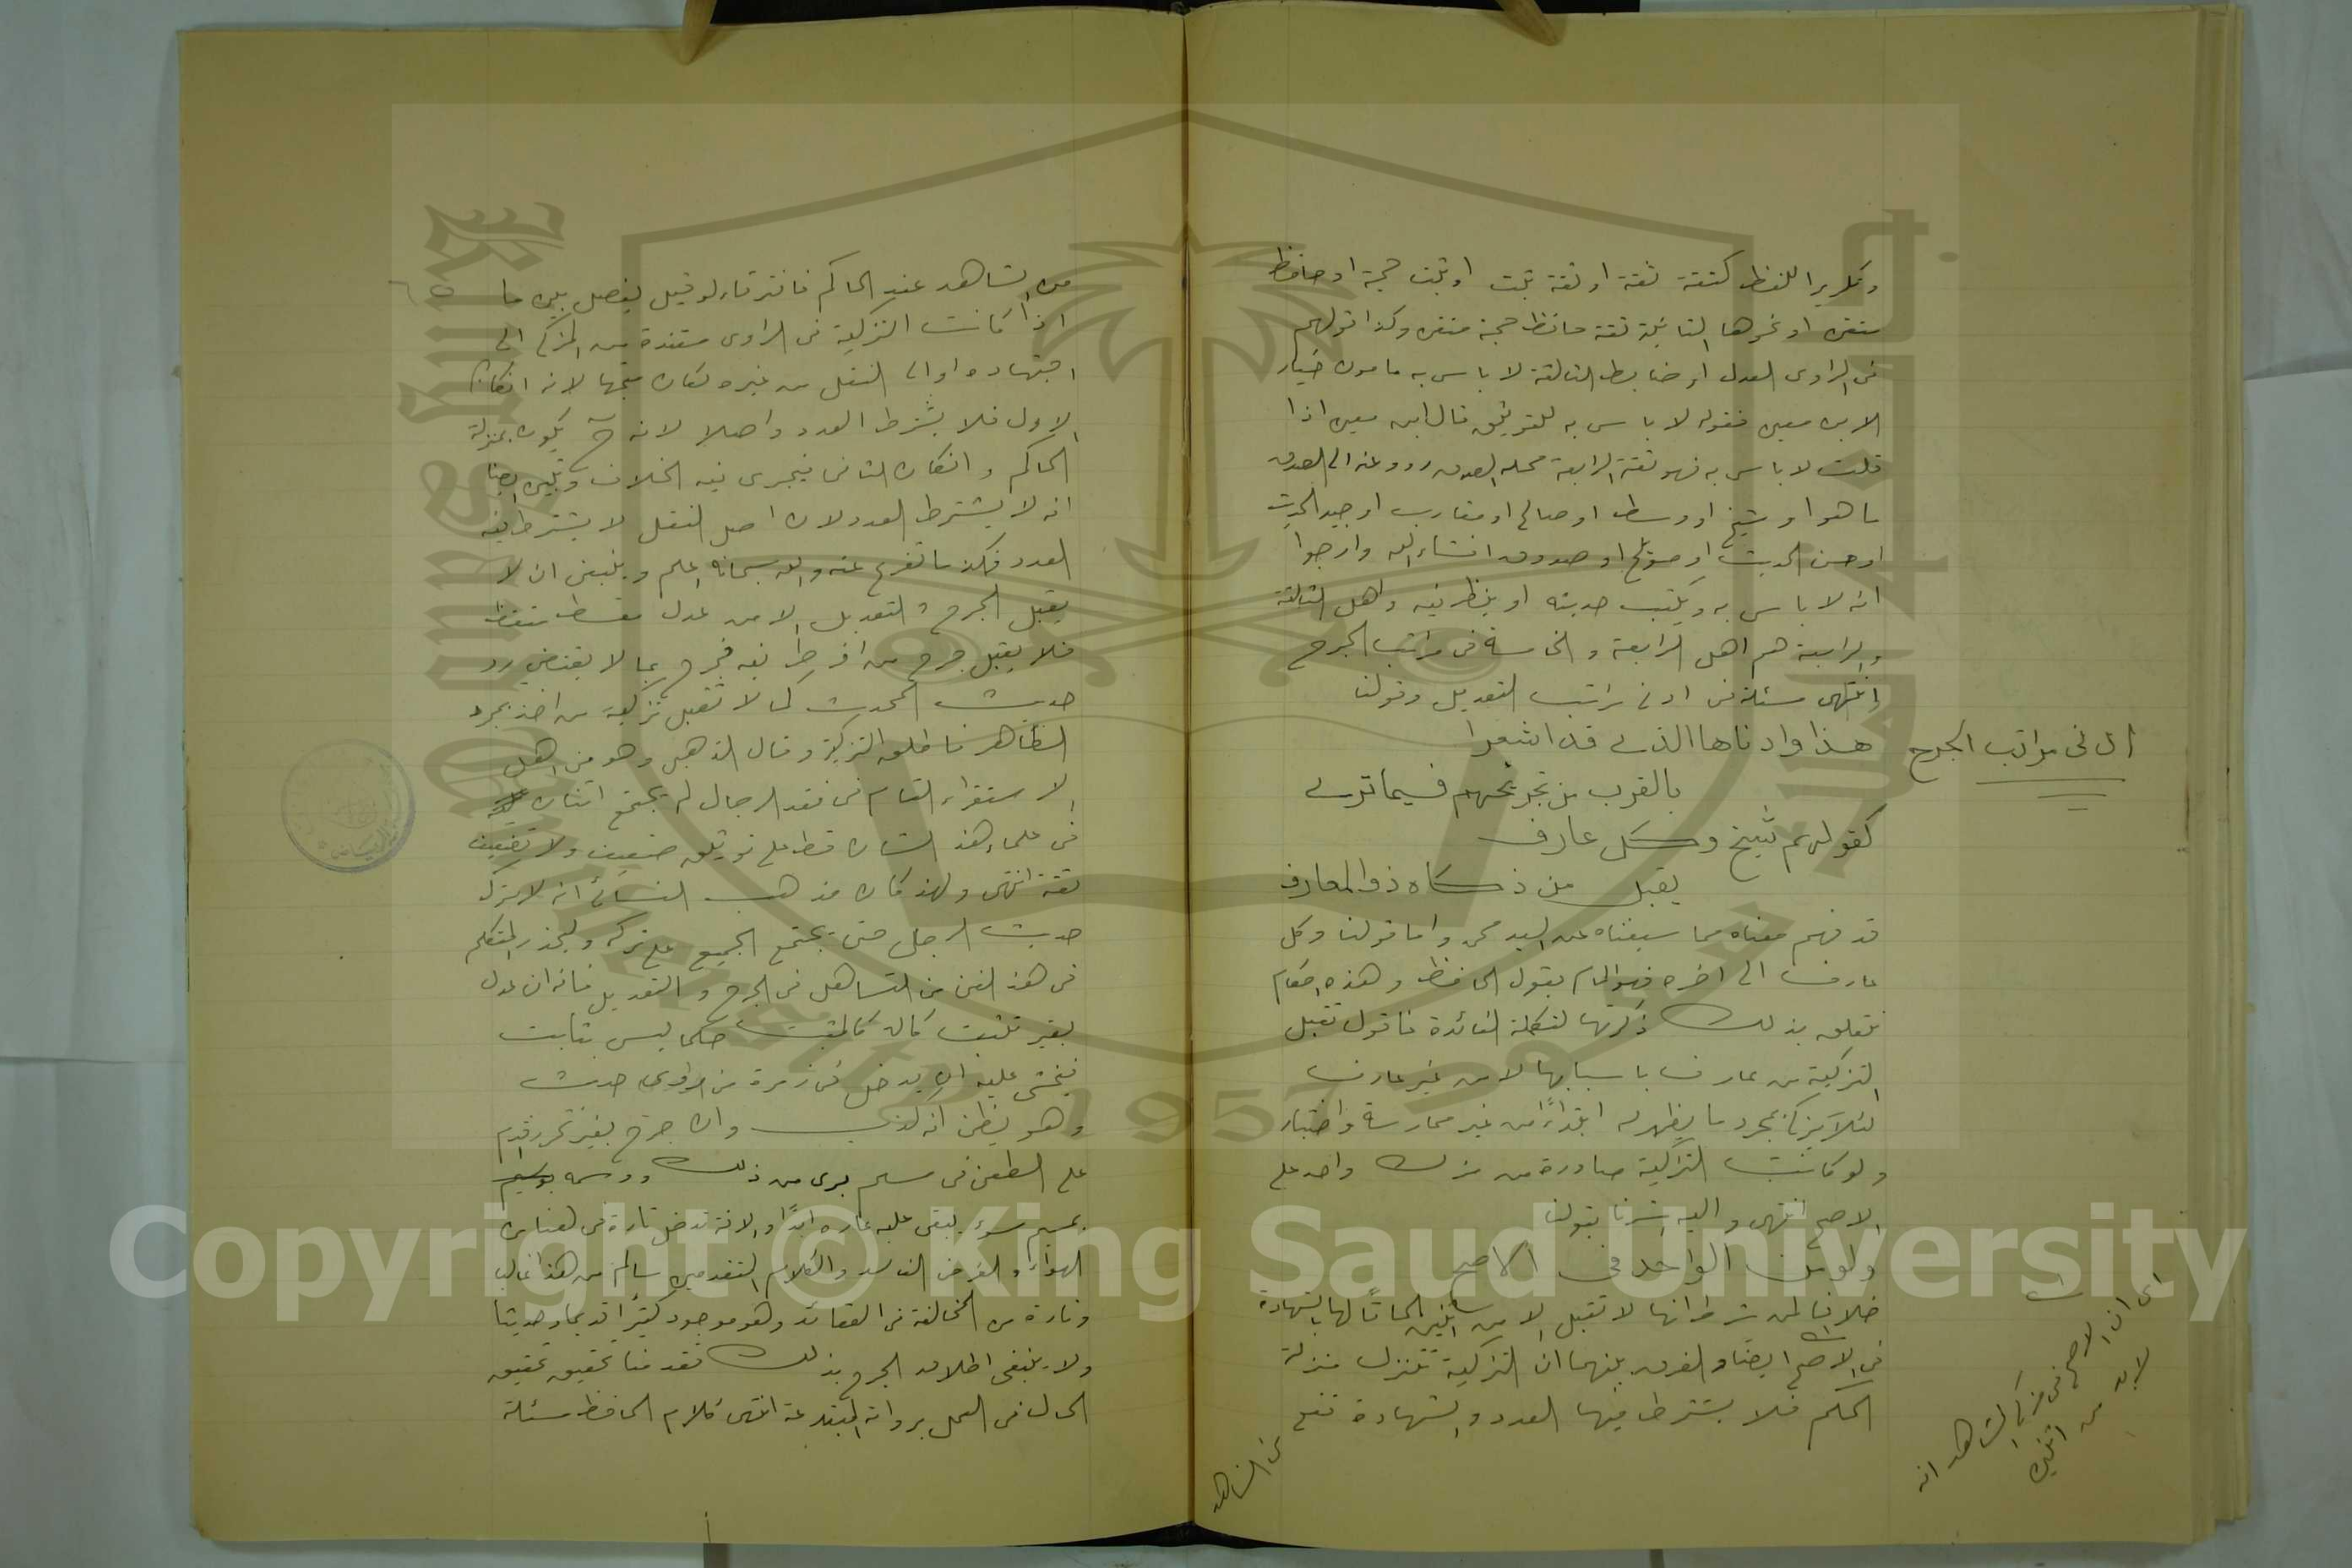 وتكريرا للفظ كثقة ثقة او ثقة ثبت او ثبت حجة او حافظ
متقن او نحوها الثانية ثقة حافظ حجة متقن وكذا قولهم
فى الراوى العدل او ضابط الثالثة لا باس به مامون خيار
الا ابن معين فقوله لا باس به للتوثيق قال ابن معين اذا
قلت لا باس به فهو ثقة الرابعة محله الصدق رووا عنه الى الصدق
ما هو او شيخ او وسط او صالح او مقارب او جيد الحديث
او حسن الحديث او صويلح او صدوق انشاء الله وارجوا
انه لا باس به ويكتب حديثه او ينظر فيه واهل الثالثة
والرابعة هم اهل الرابعة والخامسة فى مراتب الجرح
انتهى مسئلة فى ادنى مراتب التعديل وقولنا
هذا وادناها الذى قد اشعرا
اى فى مراتب الجرح
بالقرب من تجريحهم فيما ترى
كقولهم شيخ وكل عارف
يقبل من زكاه ذو المعارف
قد فهم معناه مما سبقناه عن السيد محمد واما قولنا وكل
عارف الى اخره فهو المام بقول الحافظ وهذه احكام
تتعلق بذلك ذكرتها لتكملة الفائدة فاقول تقبل
التزكية من عارف باسبابها لا من غير عارف
لئلا يزكى بمجرد ما يظهر له ابتداءً من غير ممارسة واختبار
ولو كانت التزكية صادرة من مزك واحد على
الاصح انتهى واليه اشرنا بقولنا
ولو من الواحد فى الاصح
خلافا لمن شرط انها لا تقبل الا من اثنين الحاقًا لها بالشهادة
فى الاصح ايضا والفرق بينهما ان التزكية تتنزل منزلة
الحكم فلا يشترط فيها العدد والشهادة تقع
من الشاهد
اى ان الاصح فى مزكى الشاهد انه
لا بد من اثنين
من الشاهد عند الحاكم فافترقا ولو قيل يفصل بين ما
اذا كانت التزكية فى الراوى مستندة من المزكى الى
اجتهاده او الى النقل من غيره لكان متجها لانه ان كان
الاول فلا يشترط العدد واصلا لانه ح يكون بمنزلة
الحاكم وان كان الثانى فيجرى فيه الخلاف وتبين ايضا
انه لا يشترط العدد لان اصل النقل لا يشترط فيه
العدد فكذا ما تفرع عنه والله سبحانه اعلم وينبغى ان لا
يقبل الجرح والتعديل الا من عدل متقظ
فلا يقبل جرح من افرط فيه فجرح بما لا يقتضى رد
حديث المحدث كما لا تقبل تزكية من اخذ بمجرد
الظاهر فاطلق التزكية وقال الذهبى وهو من اهل
الاستقراء التام فى نقد الرجال لم يجتمع اثنان
من علماء هذا الشان قط على توثيق ضعيف ولا تضعيف
ثقة انتهى ولهذا كان مذهب النسائى ان لا يترك
حديث الرجل حتى يجتمع الجميع على تركه وليحذر المتكلم
فى هذا الفن من التساهل فى الجرح والتعديل فانه ان عدل
بغير تثبت كان كالمثبت حكما ليس بثابت
فيخشى عليه ان يدخل فى زمرة من روى حديث
وهو يظن انه كذب وان جرح بغير تحرز اقدم
على الطعن فى مسلم برى من ذلك ووسمه
بميسم سوء يبقى عليه عاره ابدًا والافة تدخل تارة فى هذا من
الهواء والغرض الفاسد وكلام المتقدمين سالم من هذا غالبا
وتارة من المخالفة فى العقائد وهو موجود كثيرًا قديما وحديثا
ولا ينبغى اطلاق الجرح بذلك فقد قدمنا تحقيق تحقيق
الحال فى العمل برواية المبتدعة انتهى كلام الحافظ مسئلة
Copyright © King Saud University
1957